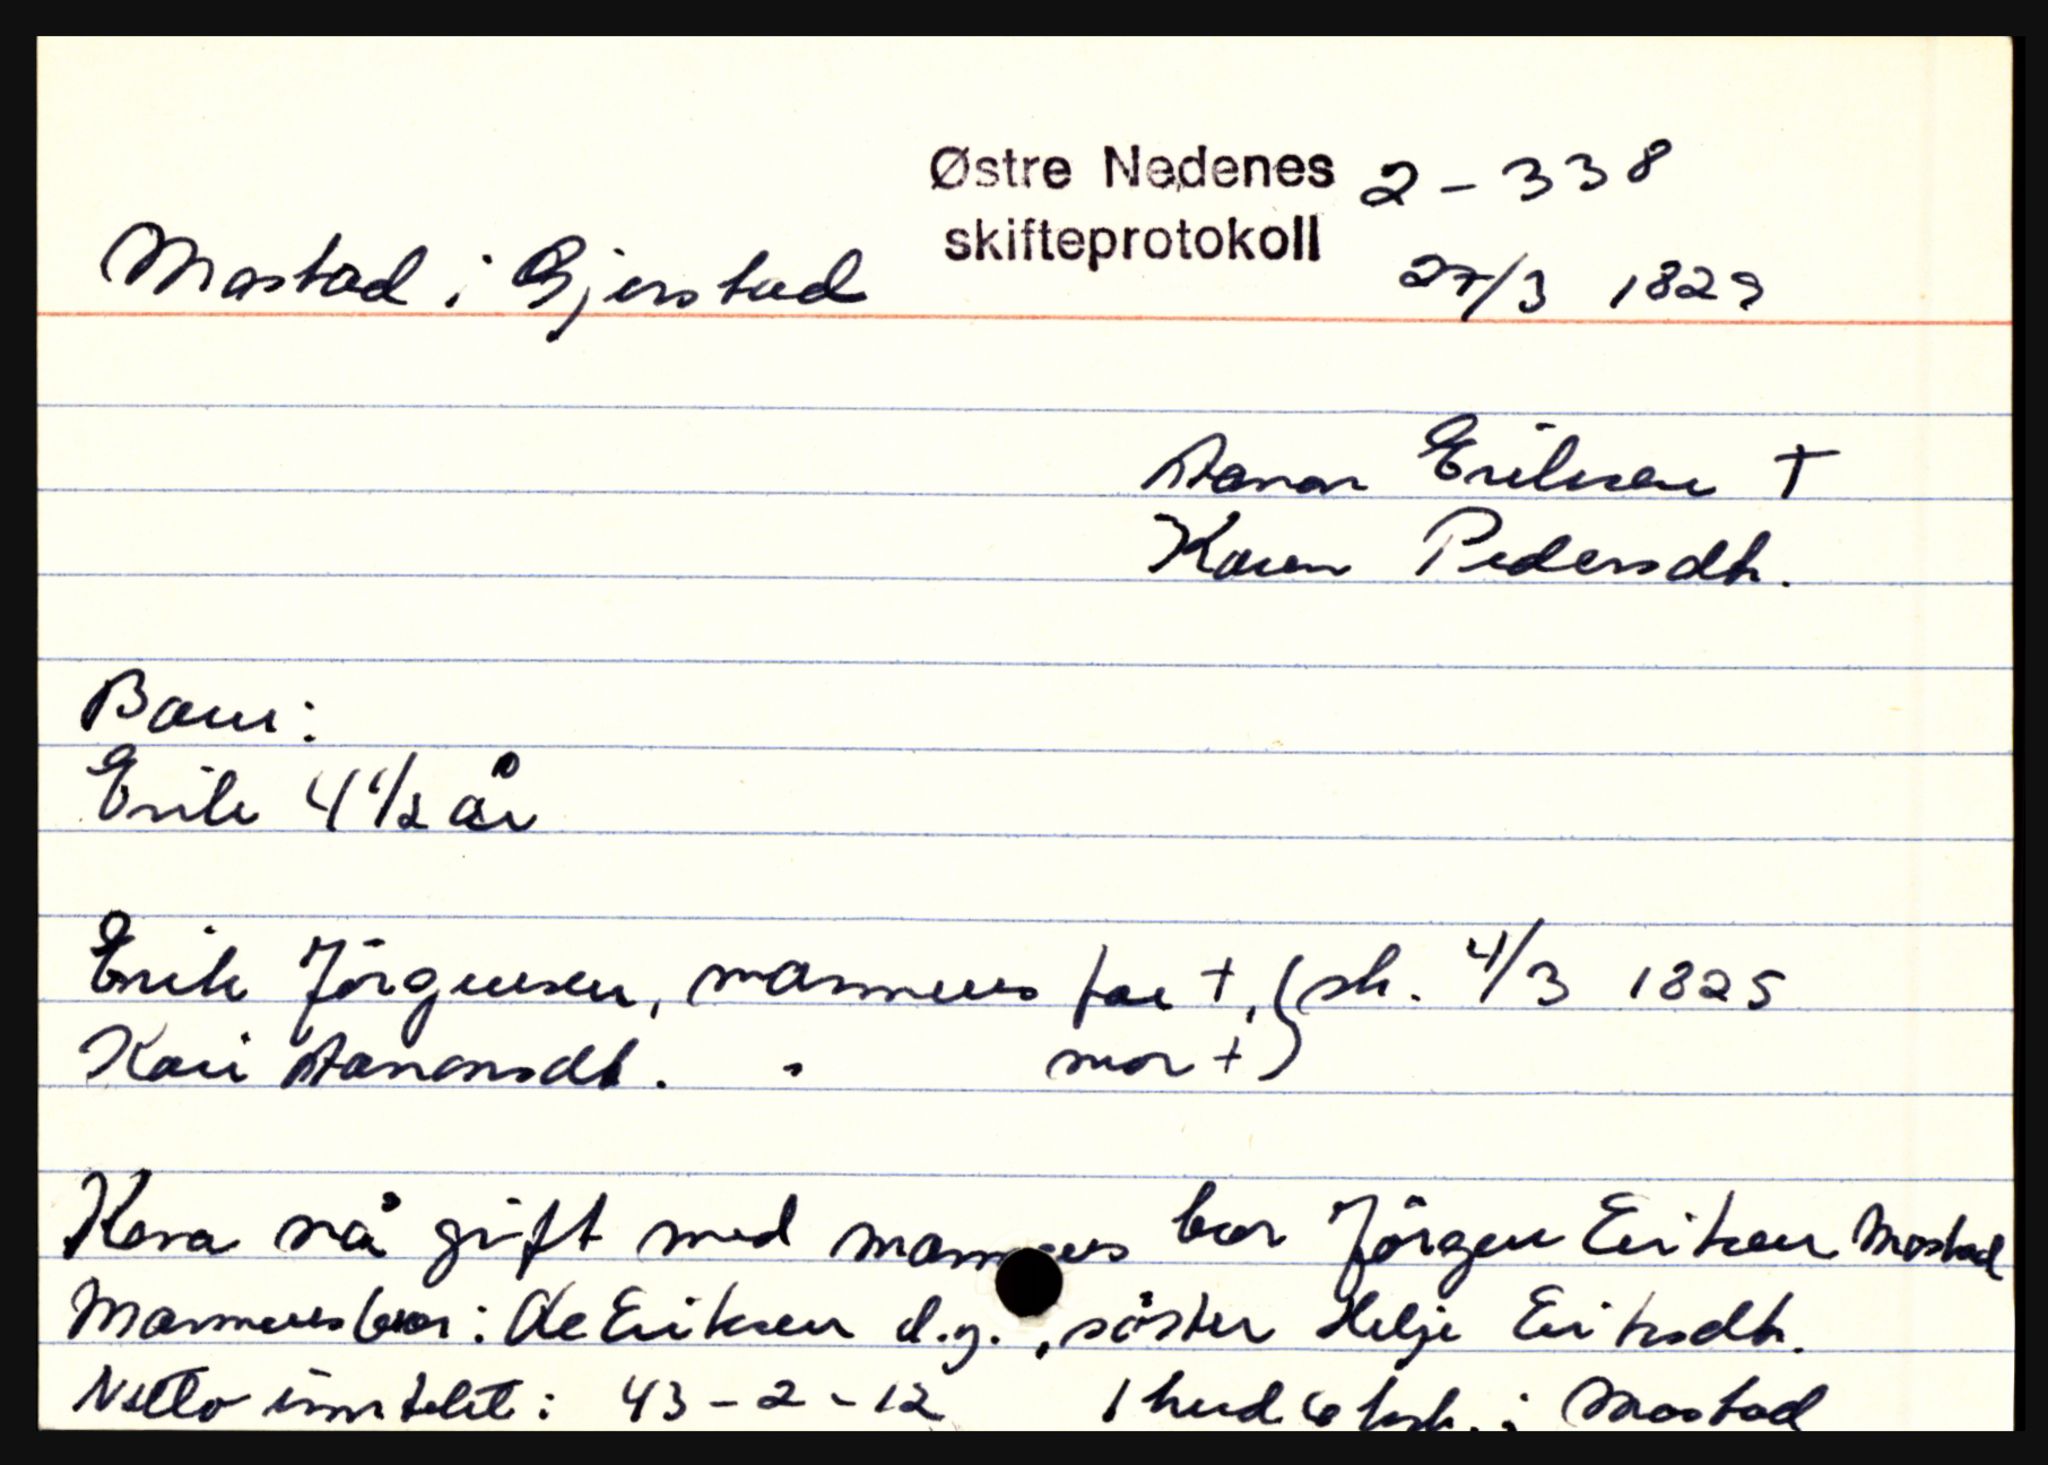 Østre Nedenes 2 - 338
skifteprotokoll
Mostad i Gjerstad 27/3 1829
Aanon Eriksen †
Karen Pedersdtr.
Barn:
Erik 4 1/2 år
Erik Jörgensen, mannens far †, (sk. 4/3 1825
Kari Aanonsdt. " mor † )
Karen nå gift med mannens bror Jörgen Eriksen Mostad
Mannens bror: Ole Eriksen d.y., söster Helje Eriksdtr.
Netto inntekt: 43 - 2 - 12 1 hud 6 ksk. i Mostad